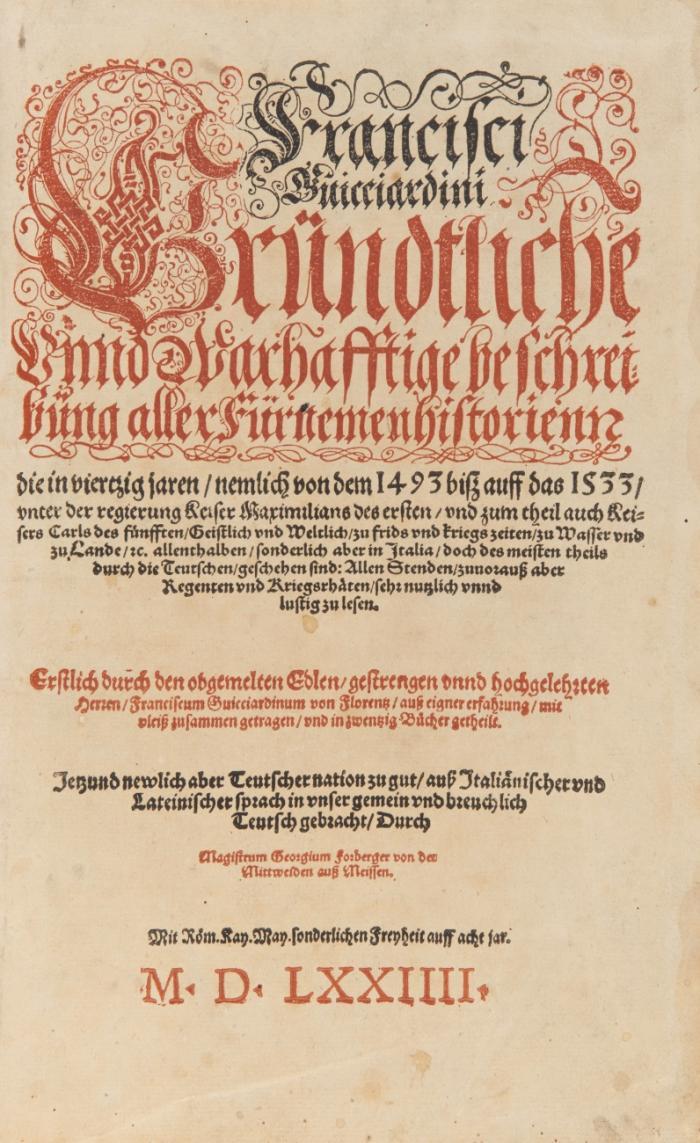 Francisci
Guicciardini
Gründtliche
Vnnd Warhafftige beschrei-
bung aller Fürnemen historienn
die in viertzig jaren / nemlich von dem 1493 biß auff das 1533/
vnter der regierung Keiser Maximilians des ersten / vnd zum theil auch Kei-
sers Carls des fünfften/Geistlich vnd Weltlich/zu frids vnd kriegs zeiten/zu Wasser vnd
zu Lande/ ꝛc. allenthalben / sonderlich aber in Italia / doch des meisten theils
durch die Teutschen/geschehen sind: Allen Stenden/zuuorauß aber
Regenten vnd Kriegsrhäten/sehr nutzlich vnnd
lustig zu lesen.
Erstlich durch den obgemelten Edlen/ gestrengen vnnd hochgelehrten
Herren/ Franciscum Guicciardinum von Florentz / auß eigner erfahrung / mit
vleiß zusammen getragen / vnd in zwentzig Bücher getheilt.
Jetzund newlich aber Teutscher nation zu gut/ auß Italiänischer vnd
Lateinischer sprach in vnser gemein vnd breuchlich
Teutsch gebracht/ Durch
Magistrum Georgium Forberger von der
Mittweiden auß Meissen.
Mit Röm. Kay. May. sonderlichen Freyheit auff acht jar.
M. D. LXXIIII.